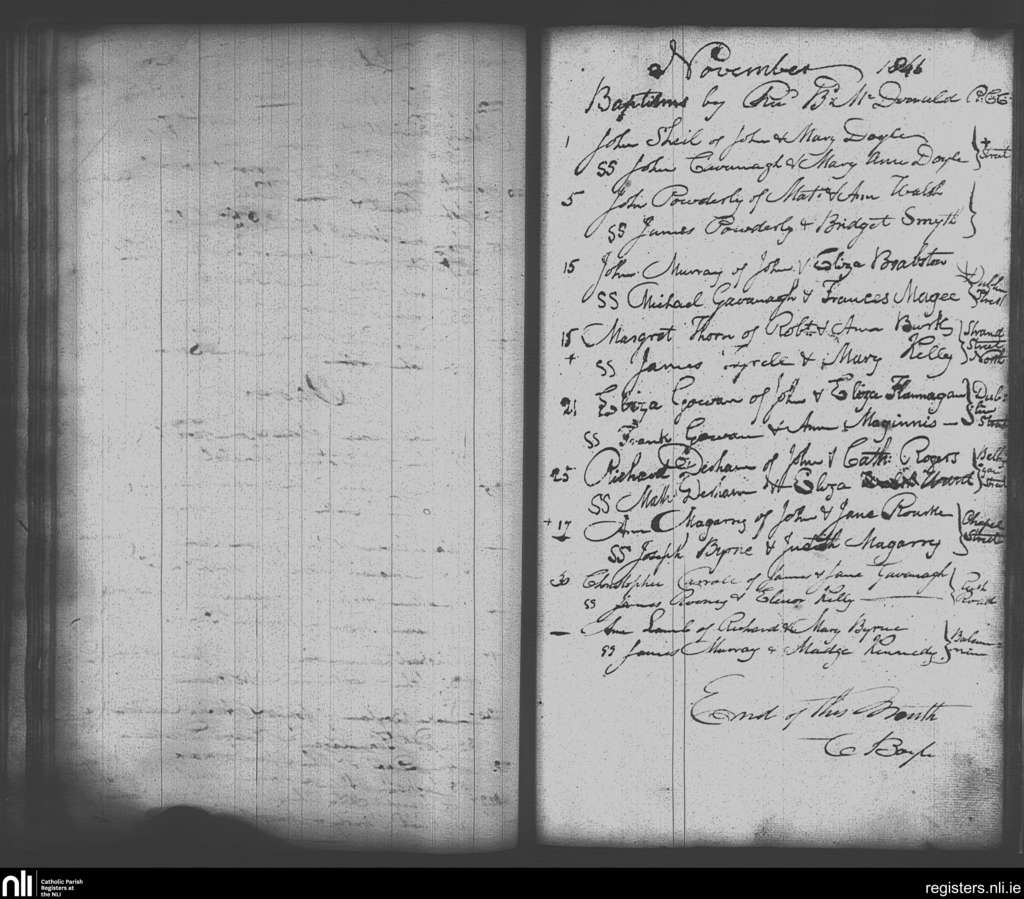 November 1846
Baptisms by Rev. Br. McDonald R.C.C.
1 John Sheil of John & Mary Doyle
SS John Cavanagh & Mary Ann Doyle Street
5 John Powderly of Mat. & Ann Walsh
SS James Powderly & Bridget Smyth
15 John Murray of John & Eliza Brabston
SS Michael Gavanagh & Frances Magee Dublin Street
15 Margret Thorn of Robt. & Ann Burk Strand Street North
+ SS James Tyrele & Mary Kelly
21 Eliza Gowan of John & Eliza Flannagan Dublin Street
SS Frank Gowan & Ann Maginnis
25 Richard Desham of John & Cath: Rogers
SS Math Desham & Eliza Street
+ 17 Ann Magarry of John & Jane Rourke Chapel Street
SS Joseph Byrne & Judith Magarry
30 Christopher Carroll of James & Jane Cavanagh Rush Road
SS James Rooney & Elenor Kelly
— Ann Lamb of Richard & Mary Byrne
SS James Murray & Madge Kennedy
End of this Month
C Boyle
nli Catholic Parish Registers at the NLI
registers.nli.ie